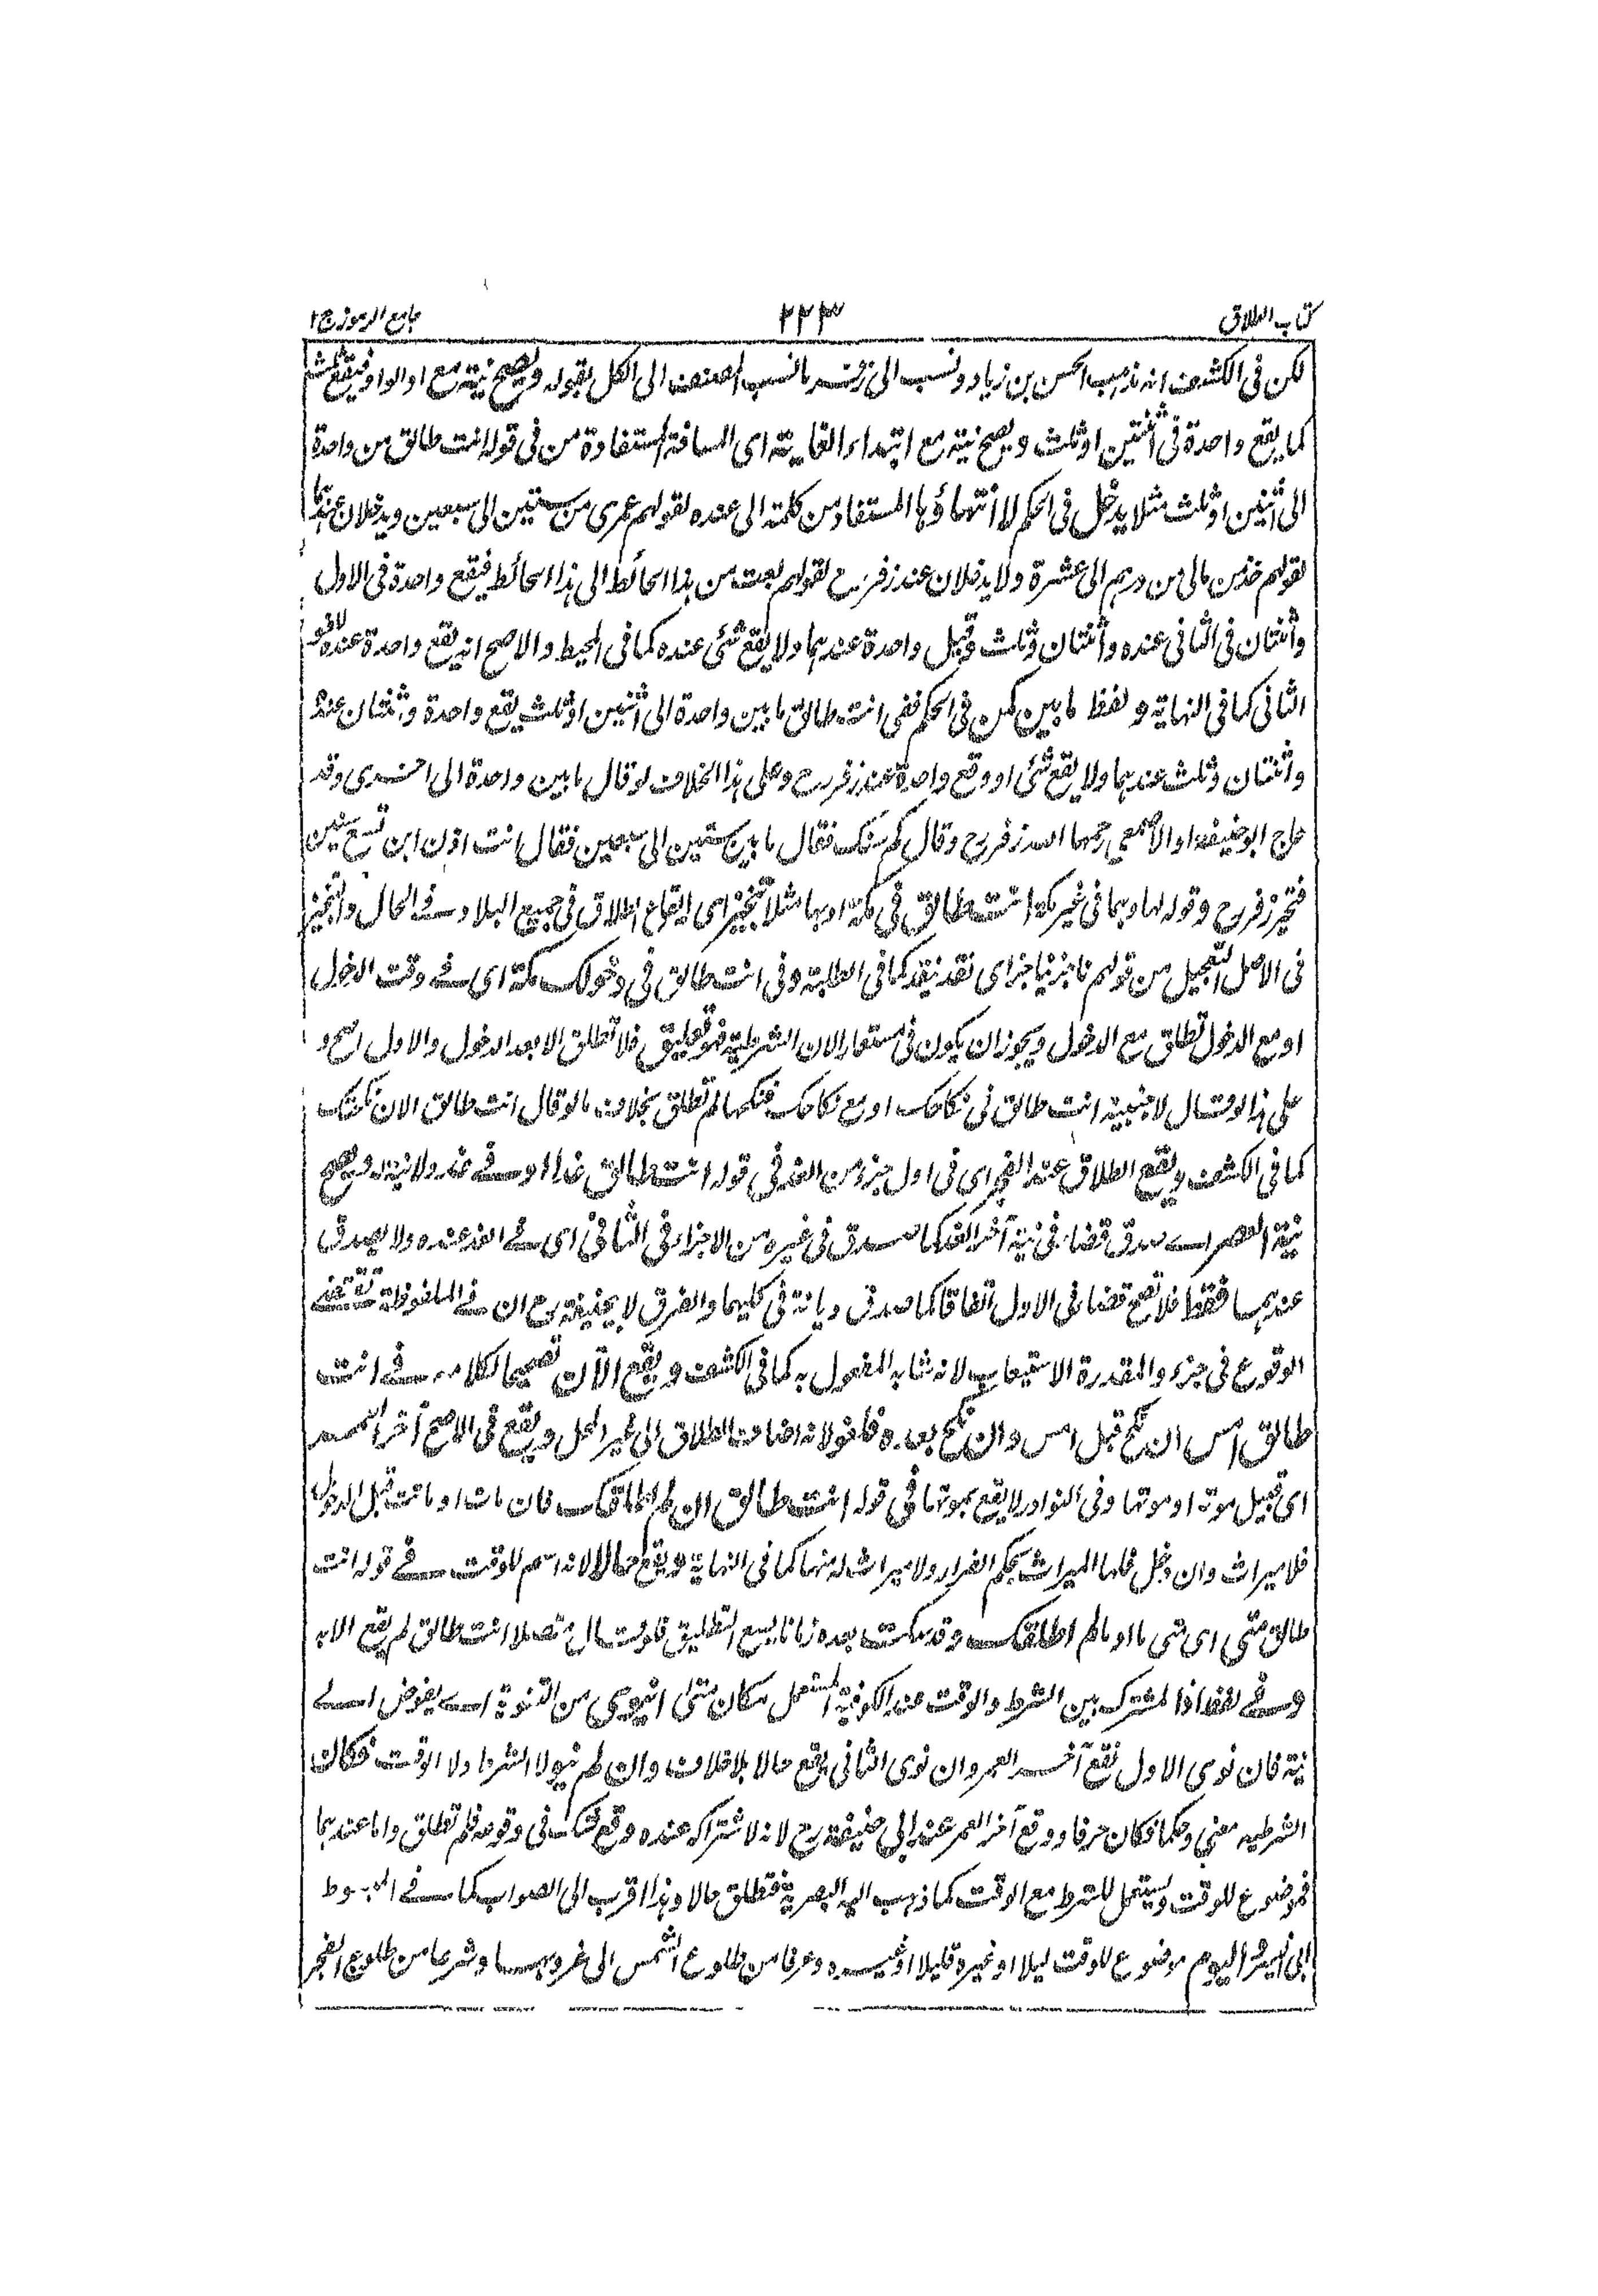 كتاب الطلاق
٢٢٣
جامع الرموز ج١
لكن فى الكشف انه مذهب الحسن بن زياد ونسب الى زفر ما نسب المصنف الى الكل بقوله ويصح نية مع او الواو فيقع ثلث
كما يقع واحدة فى اثنتين او ثلث ويصح نية مع ابتداء الغاية اى المسافة المستفادة من فى قوله انت طالق من واحدة
الى اثنين او ثلث مثلا يدخل فى الحكم لا انتهاؤها المستفاد من كلمة الى عنده لقولهم عمرى من ستين الى سبعين ويدخلان عندهما
لقولهم خذ من مالى من درهم الى عشرة ولا يدخلان عند زفر رح لقولهم بعت من هذا الحائط الى هذا الحائط فيقع واحدة فى الاول
واثنتان فى الثانى عنده واثنتان وثلث وقيل واحدة عندهما ولا يقع شئ عنده كما فى المحيط والاصح انه يقع واحدة عنده
الثانى كما فى النهاية ولفظ ما بين كمن فى الحكم ففى انت طالق ما بين واحدة الى اثنين او ثلث يقع واحدة وثنتان عنده
واثنتان وثلث عندهما ولا يقع شئ او وقع واحدة عند زفر رح وعلى هذا الخلاف لو قال ما بين واحدة الى اخرى وقد
حاج ابو حنيفة او الاصمعى رحمهما الله زفر رح وقال كم سنك فقال ما بين ستين الى سبعين فقال انت اذن ابن تسع سنين
فتحير زفر رح وقوله لها وهما فى غير مكة انت طالق فى مكة او بها مثلا تنجيز اى ايقاع الطلاق فى جميع البلاد فى الحال والتنجيز
فى الاصل التعجيل من قولهم ناجز بناجز اى نقد بنقد كما فى الطلبة وفى انت طالق فى دخولك مكة اى فى وقت الدخول
او مع الدخول تطلق مع الدخول ويجوز ان يكون فى مستعارا لان الشرطية فهو تعليق فلا تطلق الا بعد الدخول والاول اصح و
على هذا لو قال لاجنبية انت طالق فى نكاحك او مع نكاحك فنكحها لم تطلق بخلاف ما لو قال انت طالق الان نكحتك
كما فى الكشف ويقع الطلاق عند الفجر اى فى اول جزء من الغد فى قوله انت طالق غدا او فى غد ولا نية له ويصح
نية العصر اى صدق قضاء فى نية آخر الغد كما صدق فى غيره من الاجزاء فى الثانى اى فى الغد عنده ولا يصدق
عندهما فقط فلا تصح قضاء فى الاول اتفاقا كما صدق ديانة فى كليهما والفرق لابى حنيفة رح ان فى الملفوظة تقتضى
الوقوع فى جزء والمقدرة الاستيعاب لانه شابه المفعول به كما فى الكشف ويقع الآن تصحيحا لكلامه فى انت
طالق امس ان نكح قبل امس وان نكح بعده فلغو لانه اضاف الطلاق الى غير المحل ويقع فى الاصح آخر العمر
اى قبيل موته او موتها وفى النوادر لا يقع بموتها فى قوله انت طالق ان لم اطلقك فان مات او ماتت قبل الدخول
فلا ميراث وان دخل فلها الميراث بحكم الفرار ولا ميراث له منها كما فى النهاية ويقع حالا لانه اسم للوقت فى قوله انت
طالق متى اى متى ما او ما لم اطلقك وقد سكت بعده زمانا يسع التطليق فلو قال متصلا انت طالق لم يقع الا به
وفى لفظ اذا المشترك بين الشرط والوقت عند الكوفية المستعمل مكان متى ينوى من التنوية اى يفوض الى
نية فان نوى الاول تقع آخر العمر وان نوى الثانى يقع حالا بلا خلاف وان لم ينو لا الشرط ولا الوقت فكان
الشرطية معنى وحكما فكان حرفا ووقع آخر العمر عند ابى حنيفة رح لانه لاشتراكه عنده وقع شك فى وقوعه فلم تطلق واما عندهما
فموضوع للوقت ويستعمل للشرط مع الوقت كما ذهب اليه البصرية فتطلق حالا وهذا اقرب الى الصواب كما فى المبسوط
اليوم موضوع للوقت ليلا او غيره قليلا او غيره وعرفا من طلوع الشمس الى غروبها وشرعا من طلوع الفجر